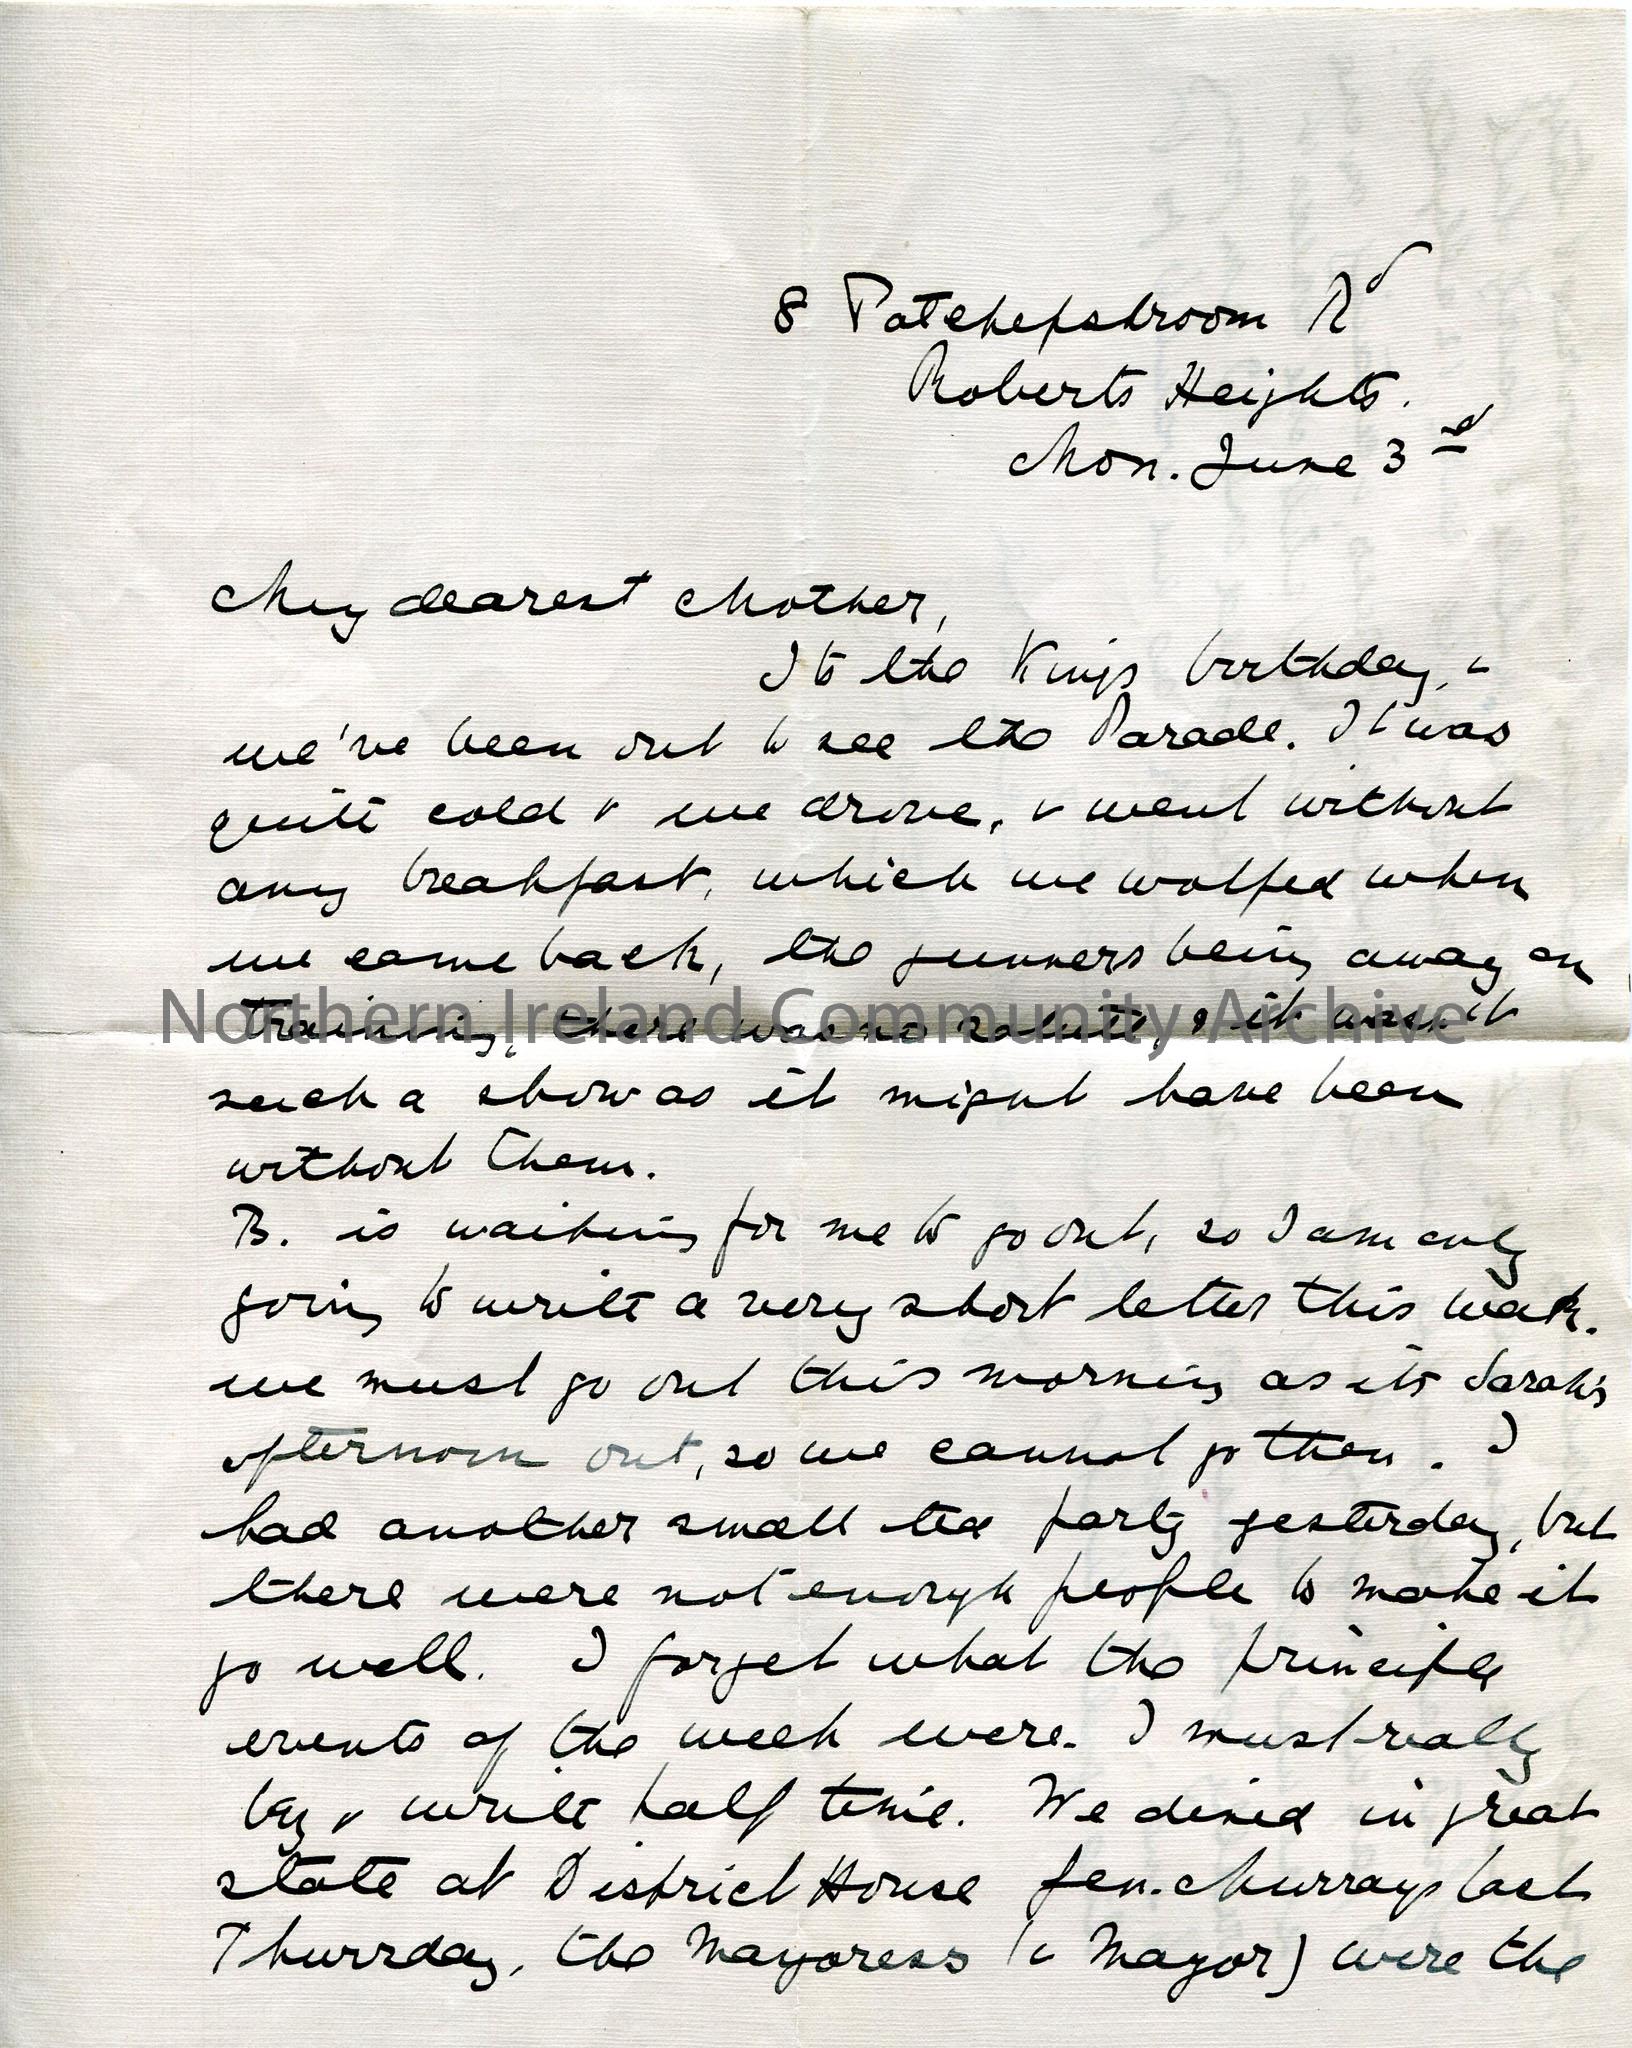 8 Potchefstroom Rd
Roberts Heights.
Mon. June 3rd
My dearest Mother,
Its the Kings birthday, &
we've been out to see the Parade. It was
quite cold & we drove, & went without
any breakfast, which we wolfed when
we came back, the gunners being away on
training, there was no salute, & it wasn't
such a show as it might have been
without them.
B. is waiting for me to go out, so I am only
going to write a very short letter this week.
we must go out this morning as its Sarah's
afternoon out, so we cannot go then. I
had another small tea party yesterday, but
there were not enough people to make it
go well. I forget what the principle
events of the week were. I must really
try & write half time. We dined in great
state at District House Gen. Murrays last
Thursday, the Mayoress (& Mayor) were the
Northern Ireland Community Archive